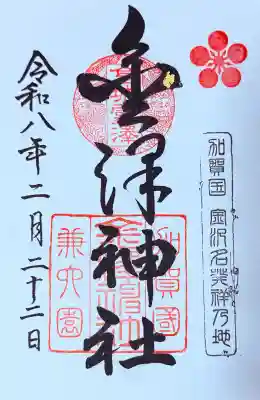 加賀国 金沢名発祥乃地
金澤神社
加賀國
兼六園
令和八年二月二十二日